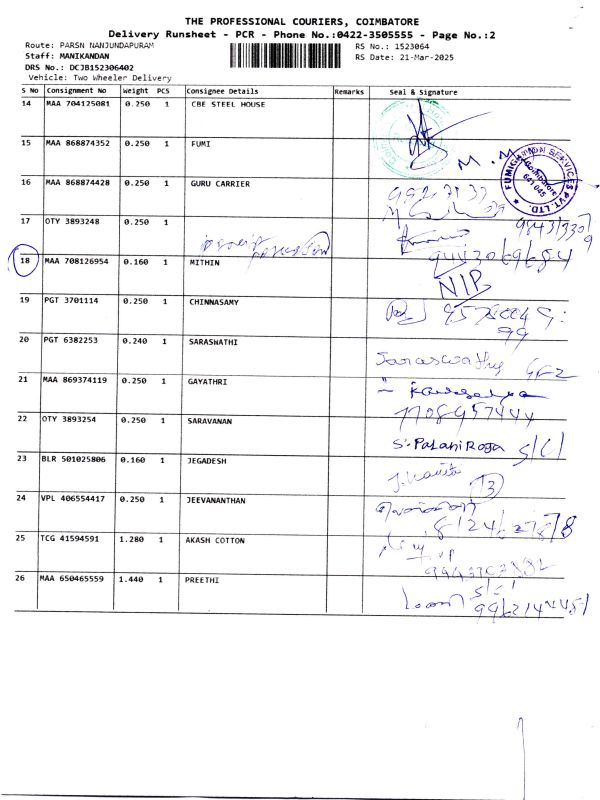 THE PROFESSIONAL COURIERS, COIMBATORE
Delivery Runsheet - PCR - Phone No.:0422-3505555 - Page No.:2
Route: PARSN NANJUNDAPURAM
RS No.: 1523064
Staff: MANIKANDAN
RS Date: 21-Mar-2025
DRS No.: DCJB152306402
Vehicle: Two Wheeler Delivery
S No Consignment No Weight PCS Consignee Details Remarks Seal & Signature
14 MAA 704125081 0.250 1 CBE STEEL HOUSE
15 MAA 868874352 0.250 1 FUMI M.M
FUMIGATION SERVICES PVT. LTD.
Coimbatore
641 045
16 MAA 868874428 0.250 1 GURU CARRIER
17 OTY 3893248 0.250 1
18 MAA 708126954 0.160 1 MITHIN NIP
19 PGT 3701114 0.250 1 CHINNASAMY
20 PGT 6382253 0.240 1 SARASWATHI Saraswathy
21 MAA 869374119 0.250 1 GAYATHRI
7708957444
22 OTY 3893254 0.250 1 SARAVANAN S. Palani Roga S/C/
23 BLR 501025806 0.160 1 JEGADESH J. Kavita
24 VPL 406554417 0.250 1 JEEVANANTHAN
25 TCG 41594591 1.280 1 AKASH COTTON
26 MAA 650465559 1.440 1 PREETHI